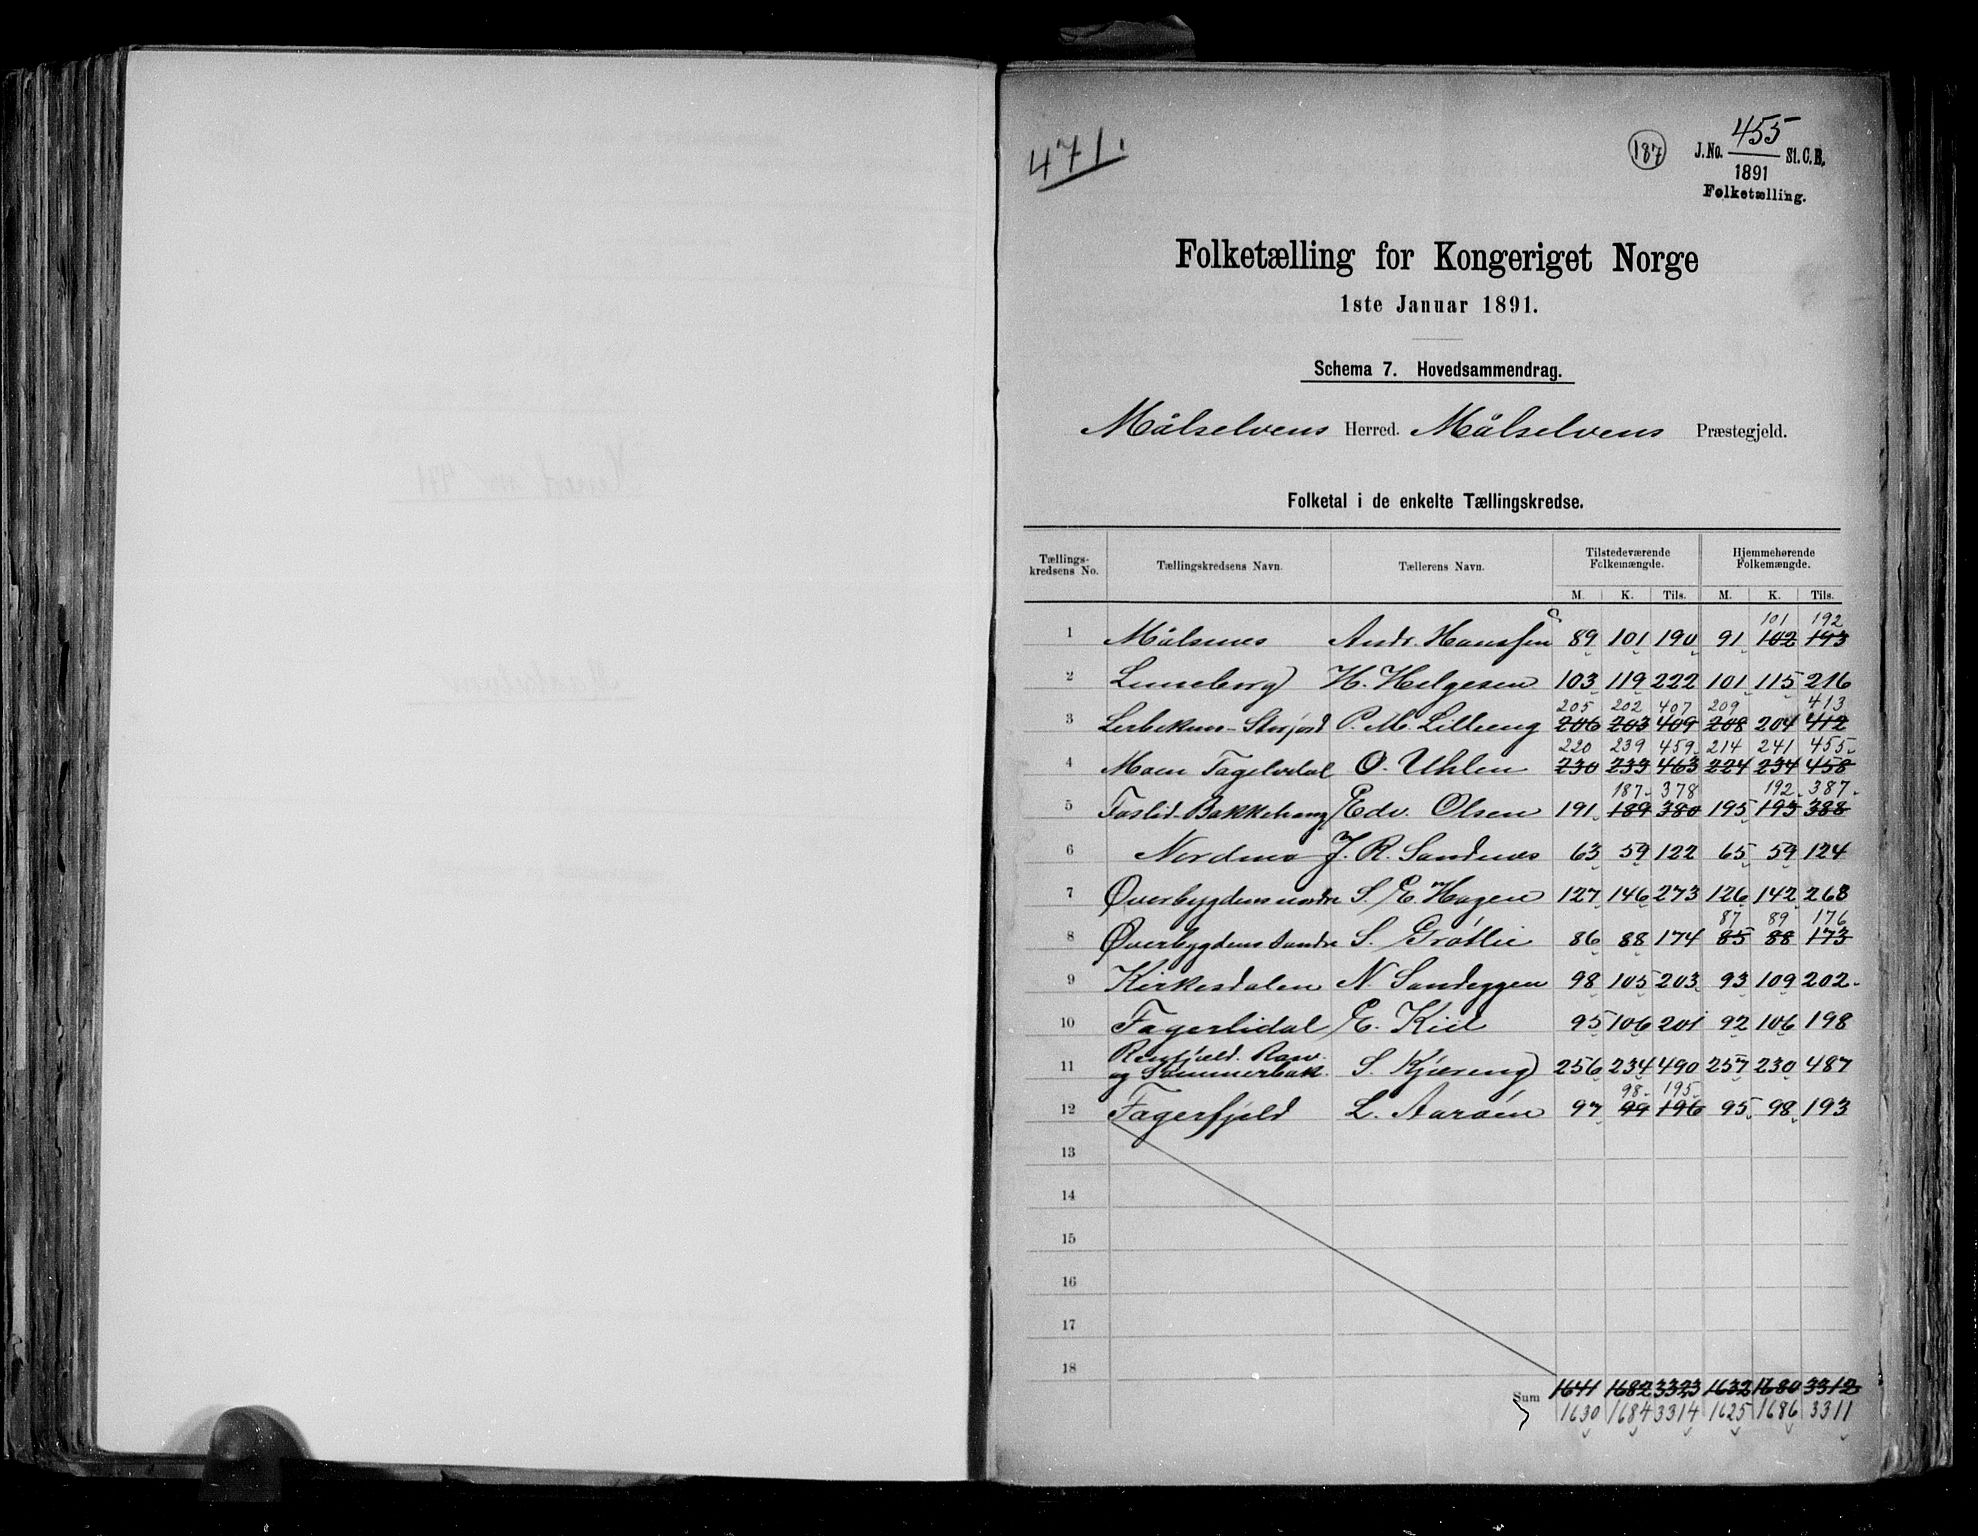 471.
187
455
J.No. St.C.B.
1891
Folketælling.
Folketælling for Kongeriget Norge
1ste Januar 1891.
Schema 7. Hovedsammendrag.
Målselvens Herred. Målselvens Præstegjeld.
Folketal i de enkelte Tællingskredse.
Tællings-kredsens No. Tællingskredsens Navn. Tællerens Navn. Tilstedeværende Folkemængde. Hjemmehørende Folkemængde.
M. K. Tils. M. K. Tils.
101 192
1 Målsnes Andr. Hanssen 89 101 190 91 102 193
2 Luneborg H. Helgesen 103 119 222 101 115 216
205 202 407 209 413
3 Storjord P. M. Lilleeng 206 203 409 208 204 412
220 239 459 214 241 455
4 Moen Fagelvdal O. Uhlen 230 233 463 224 234 458
187 378 192 387
5 Foslid-Bakkehaug Edv. Olsen 191 189 380 195 193 388
6 Nordmo J. R. Sandnes 63 59 122 65 59 124
7 Øverbygdens nordre S. E. Hagen 127 146 273 126 142 268
87 89 176
8 Øverbygdens søndre S. Grøtlie 86 88 174 85 88 173
9 Kirkesdalen N. Sandeggen 98 105 203 93 109 202
10 Fagerlidal E. Kiil 95 106 201 92 106 198
11 Renfjeld. Rav. og Sommerbak. S. Kjæreng 256 234 490 257 230 487
98 195
12 Fagerfjeld L. Aarøen 97 99 196 95 98 193
13
14
15
16
17
18
Sum 1641 1682 3323 1632 1680 3312
1630 1684 3314 1625 1686 3311